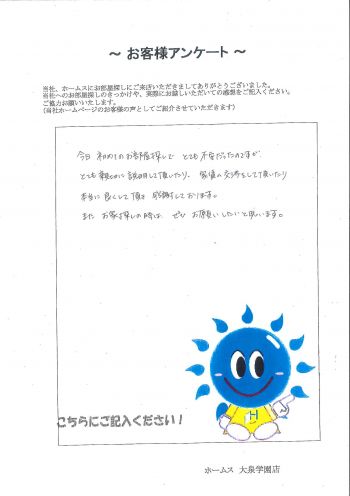 ～ お客様アンケート ～
当社、ホームスにお部屋探しにご来店いただきましてありがとうございました。
当社へのお部屋探しのきっかけや、実際にお越しいただいての感想をご記入ください。
ご協力お願いいたします。
(当社ホームページのお客様の声としてご紹介させていただきます)
今日 初めてのお部屋探しで とても不安だったのですが
とても親切に説明して頂いたり、家賃の交渉をして頂いたり
本当に良くして頂き 感謝しております。
また お家探しの時は ぜひ お願いしたいと思います。
H
こちらにご記入ください！
ホームス 大泉学園店